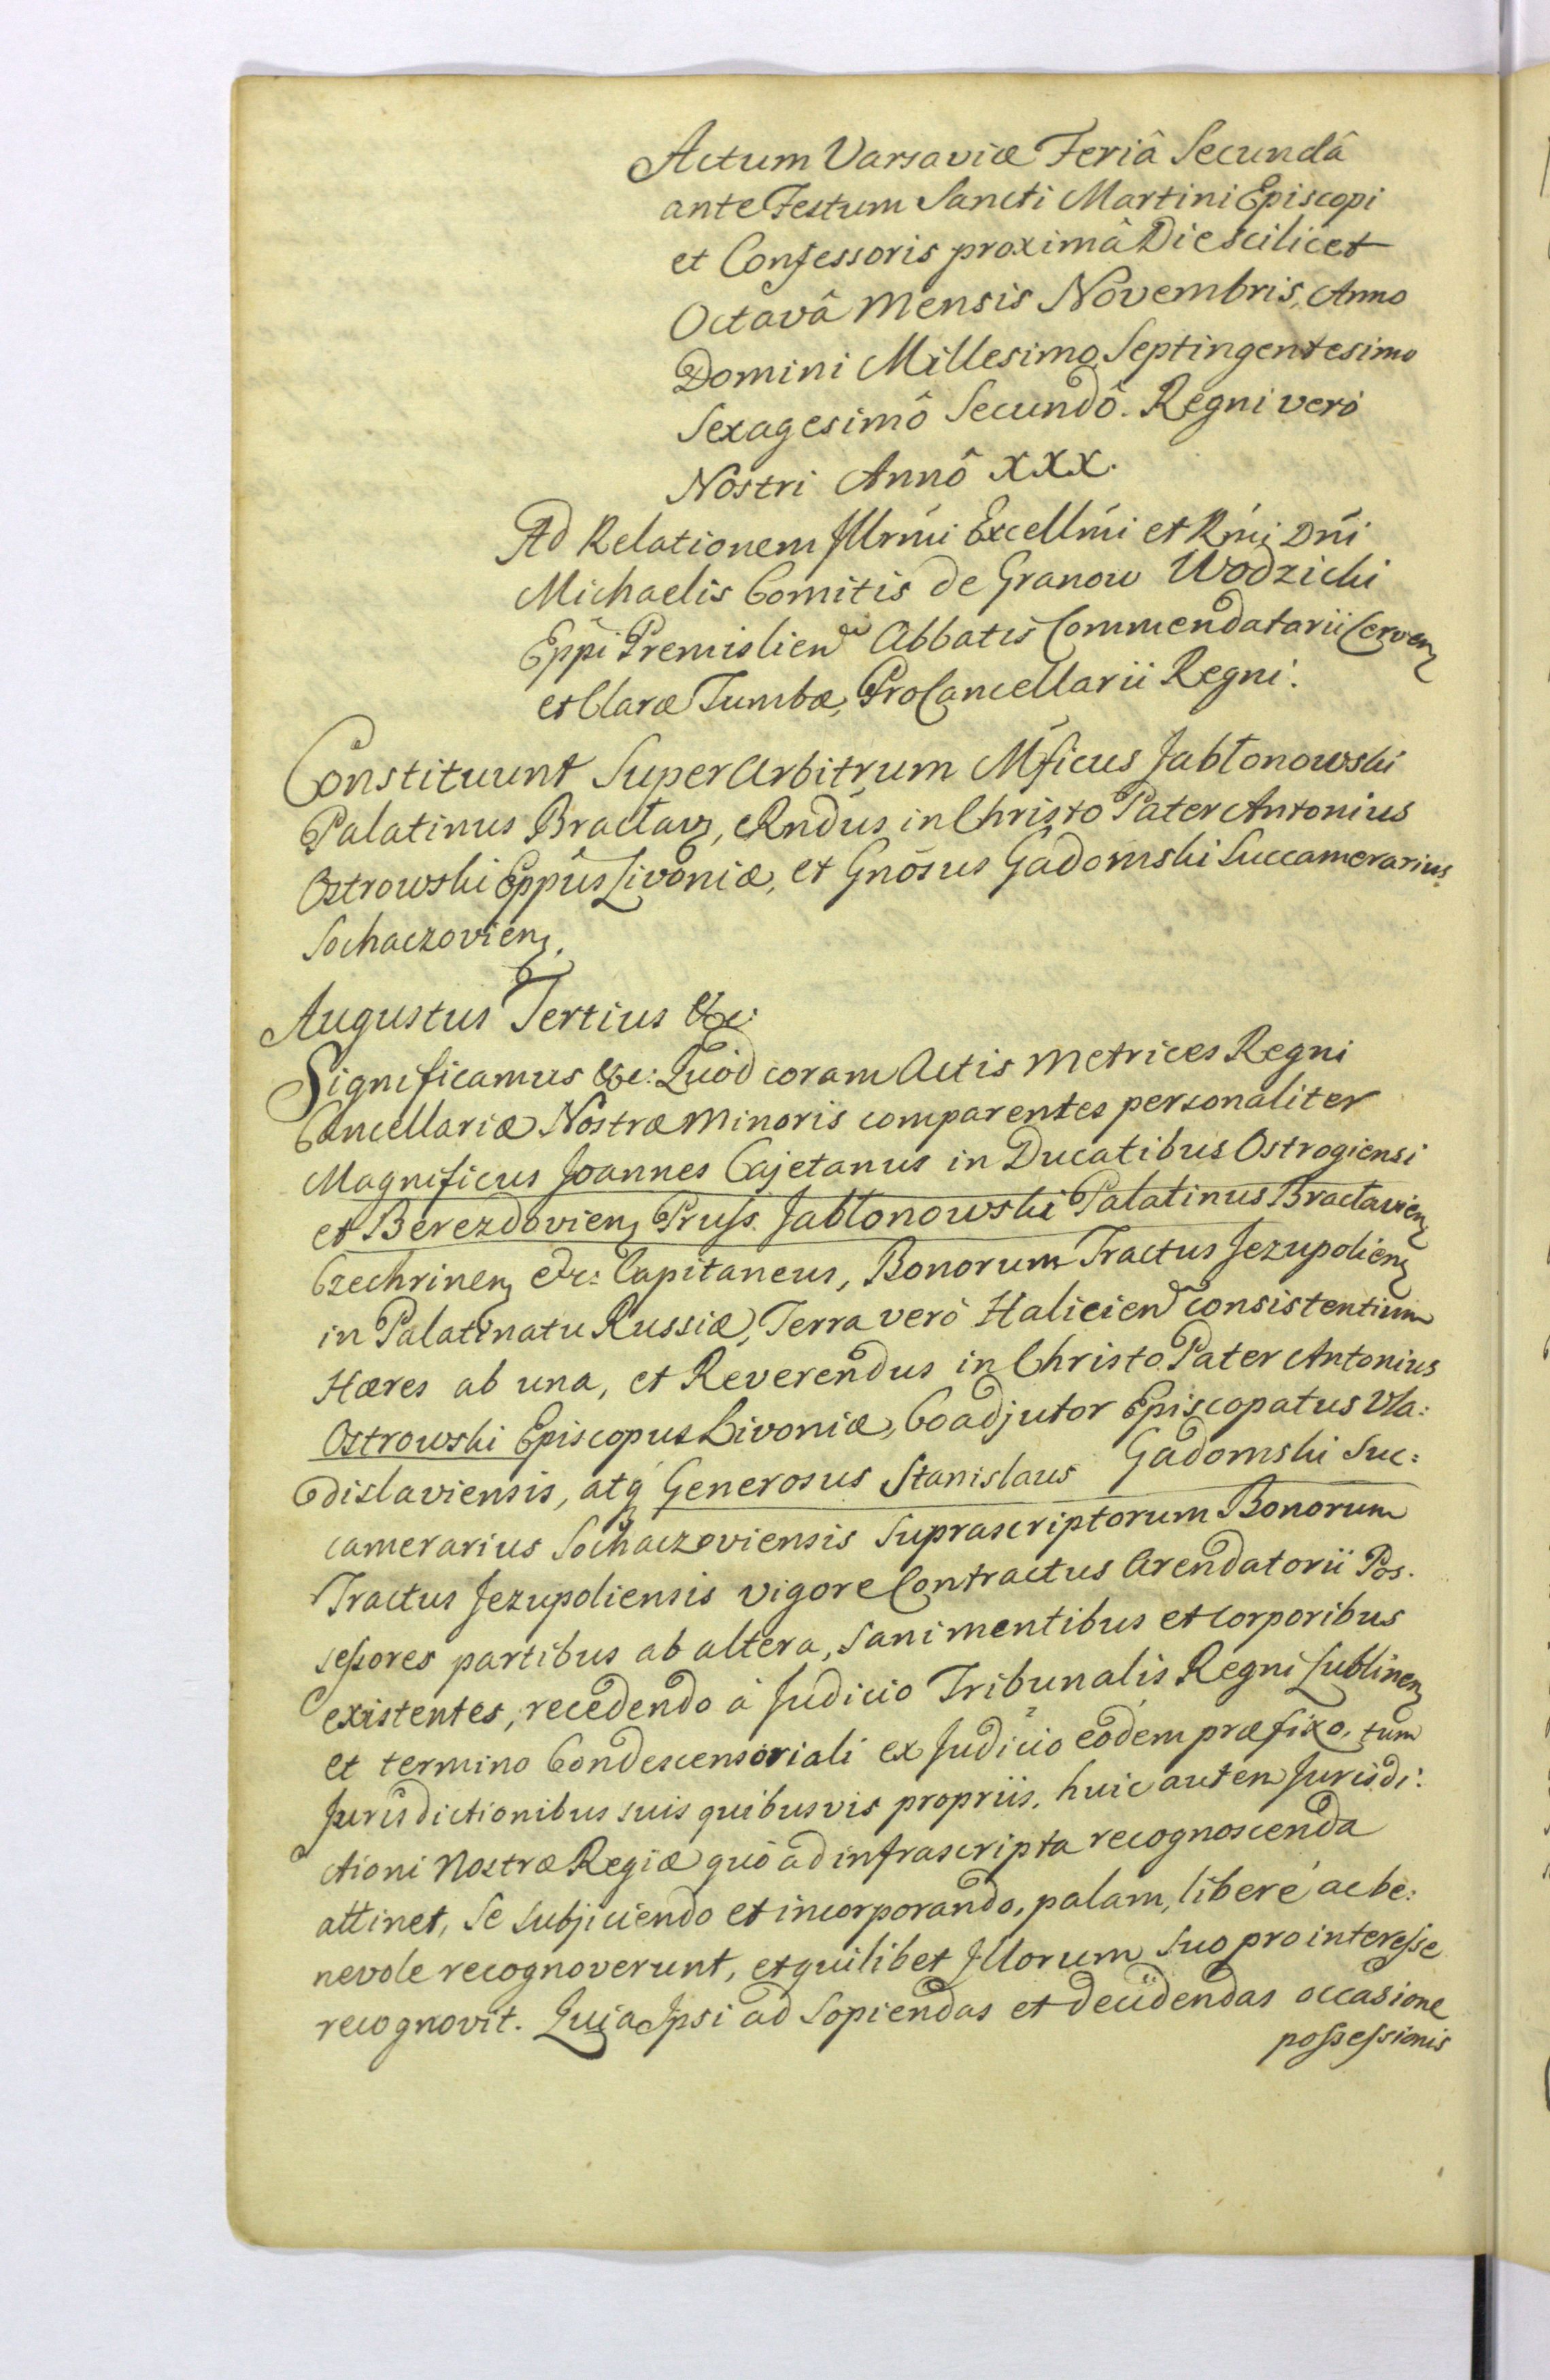 Actum Varsaviæ Feriâ Secundâ
ante Festum Sancti Martini Episcopi
et Confessoris proximâ Die scilicet
Octavâ Mensis Novembris, Anno
Domini Millesimo Septingentesimo
Sexagesimô Secundô. Regni verò
Nostri Annô XXX.
Ad Relationem Illrm̃i Excellm̃i et Rm̃i Dñi
Michaelis Comitis de Granow Wodzicki
Epp̃i Premislien̄ Abbatis Commendatarii Cerven̄
et Claræ Tumbæ, ProCancellarii Regni.
Constituunt SuperArbitrum Mficus Jabłonowski
Palatinus Bracław̄, Rndus in Christo Pater Antonius
Ostrowski Epp̃us Livoniæ, et Gnõsus Gadomski Succamerarius
Sochaczovien̄.
Augustus Tertius &c:
Significamus &c: Quòd coram Actis Metrices Regni
Cancellariæ Nostræ Minoris comparentes personaliter
Magnificus Joannes Cajetanus in Ducatibus Ostrogiensi
et Berezdovien̄ Pruss Jabłonowski Palatinus Braclavien̄
Czechrinen̄ &c: Capitaneus, Bonorum Tractus Jezupolien̄
in Palatinatu Russiæ, Terra verò Halicien̄ consistentium
Hæres ab una, et Reverendus in Christo Pater Antonius
Ostrowski Episcopus Livoniæ, Coadjutor Episcopatus Vla:
dislaviensis, atq́ Generosus Stanislaus Gadomski Suc:
camerarius Sochaczoviensis Suprascriptorum Bonorum
Tractus Jezupoliensis vigore Contractus Arendatorii Pos.
sessores partibus ab altera, sani mentibus et corporibus
existentes, recedendo à Judicio Tribunalis Regni Lublinen̄
et termino Condescensoriali ex Judicio eodem præfixo, tum
Jurisdictionibus suis quibusvis propriis, huic autem Jurisdi:
ctioni Nostræ Regiæ quò ad infrascripta recognoscenda
attinet, se subjiciendo et incorporando, palam, liberè ac be:
nevole recognoverunt, et quilibet Illorum suo pro interesse
recognovit. Quia Ipsi ad sopiendas et decidendas occasione
possessionis